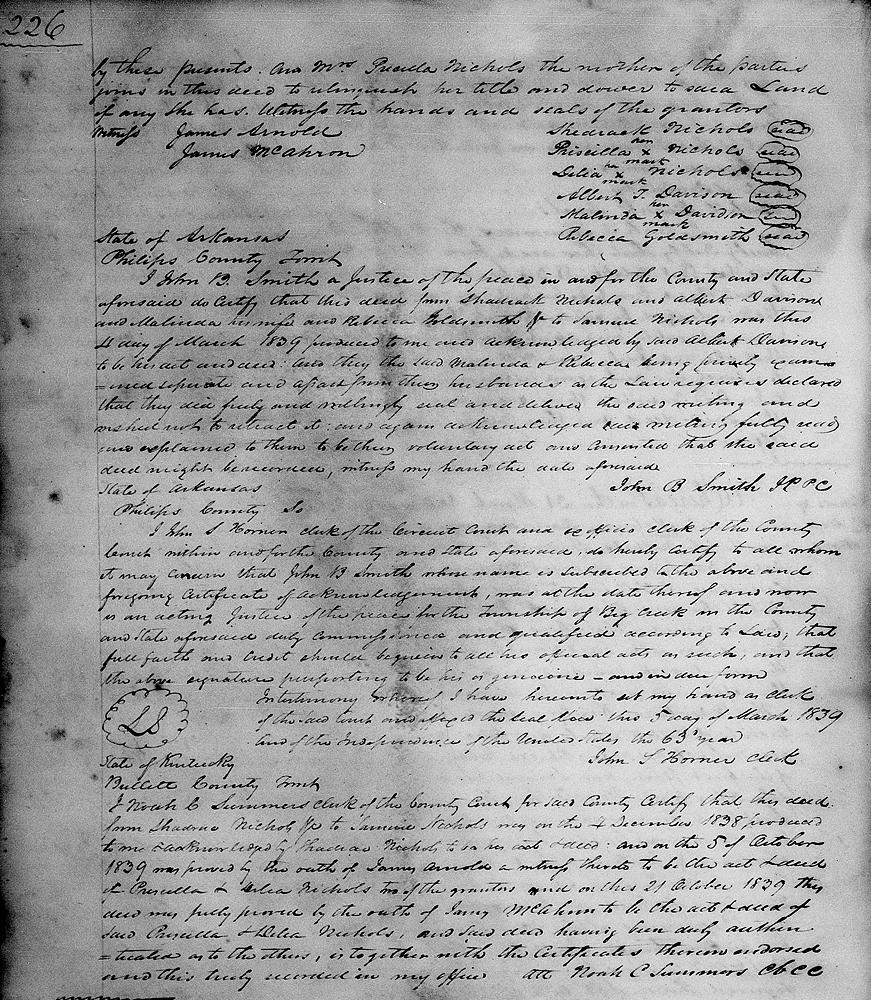 226
by these presents. And Mrs Precella Nichols the mother of the parties
joins in this deed to relinquish her title and dower to said Land
if any she has. Witness the hands and seals of the grantors
Witness James Arnold
James McAhron
Shedrack Nichols seal
Priscilla her x mark Nichols seal
Delia her x mark Nichols seal
Albert T. Davison seal
Malinda her x mark Davidson seal
Rebecca Goldsmith seal
State of Arkansas
Philips County Towit
I John B. Smith a Justice of the peace in and for the County and State
aforesaid do Certify that this deed from Shadrack Nichols and Albert Davison
and Malinda his wife and Rebecca Goldsmith to Samuel Nichols was this
4 day of March 1839 produced to me and acknowledged by said Albert Davison
to be his act and deed: and they the said Malinda & Rebecca being privily exam=
=ined seperate and apart from their husbands as the Law requires declared
that they did freely and willingly seal and deliver the said writing and
wished not to retract it: and again acknowledged said writing fully read
and explained to them to be their voluntary act and consented that the said
deed might be recorded, witness my hand the date aforesaid
John B Smith JPPC
State of Arkansas
Philips County Ss
I John S Horner clerk of the Circuit Court and ex officio clerk of the County
Court within and for the County and State aforesaid, do hereby Certify to all whom
it may Concern that John B Smith whose name is Subscribed to the above and
foregoing Certificate of acknowledgement, was at the date thereof and now
is an acting Justice of the peace for the Township of Big Creek in the County
and State aforesaid duly Commissioned and qualified according to Law; that
full faith and Credit should be given to all his official acts as such, and that
the above signature purporting to be his is genuine - and in due form
In testimony whereof I have hereunto set my hand as clerk
of the said Court and affixed the seal there this 5 day of March 1839
and of the Independence of the United States the 63d year
LS
John S Horner clerk
State of Kentucky
Bullett County Towit
I Noah C Summers clerk of the County Court for said County Certify that this deed
from Shadrac Nichols to Samuel Nichols was on the 4 December 1838 produced
to me & acknowledged by Shadrac Nichols to be his act & deed: and on the 5 of October
1839 was proved by the oath of James Arnold a witness thereto to be the act & deed
of Prescella & Delia Nichols two of the grantors and on this 21 October 1839 this
deed was fully proved by the oath of James McAhron to be the act & deed of
said Precella & Delia Nichols, and said deed having been duly authen
=ticated as to the others, is together with the Certificates thereon endorsed
and this truly recorded in my office att Noah C Summers Clk CC